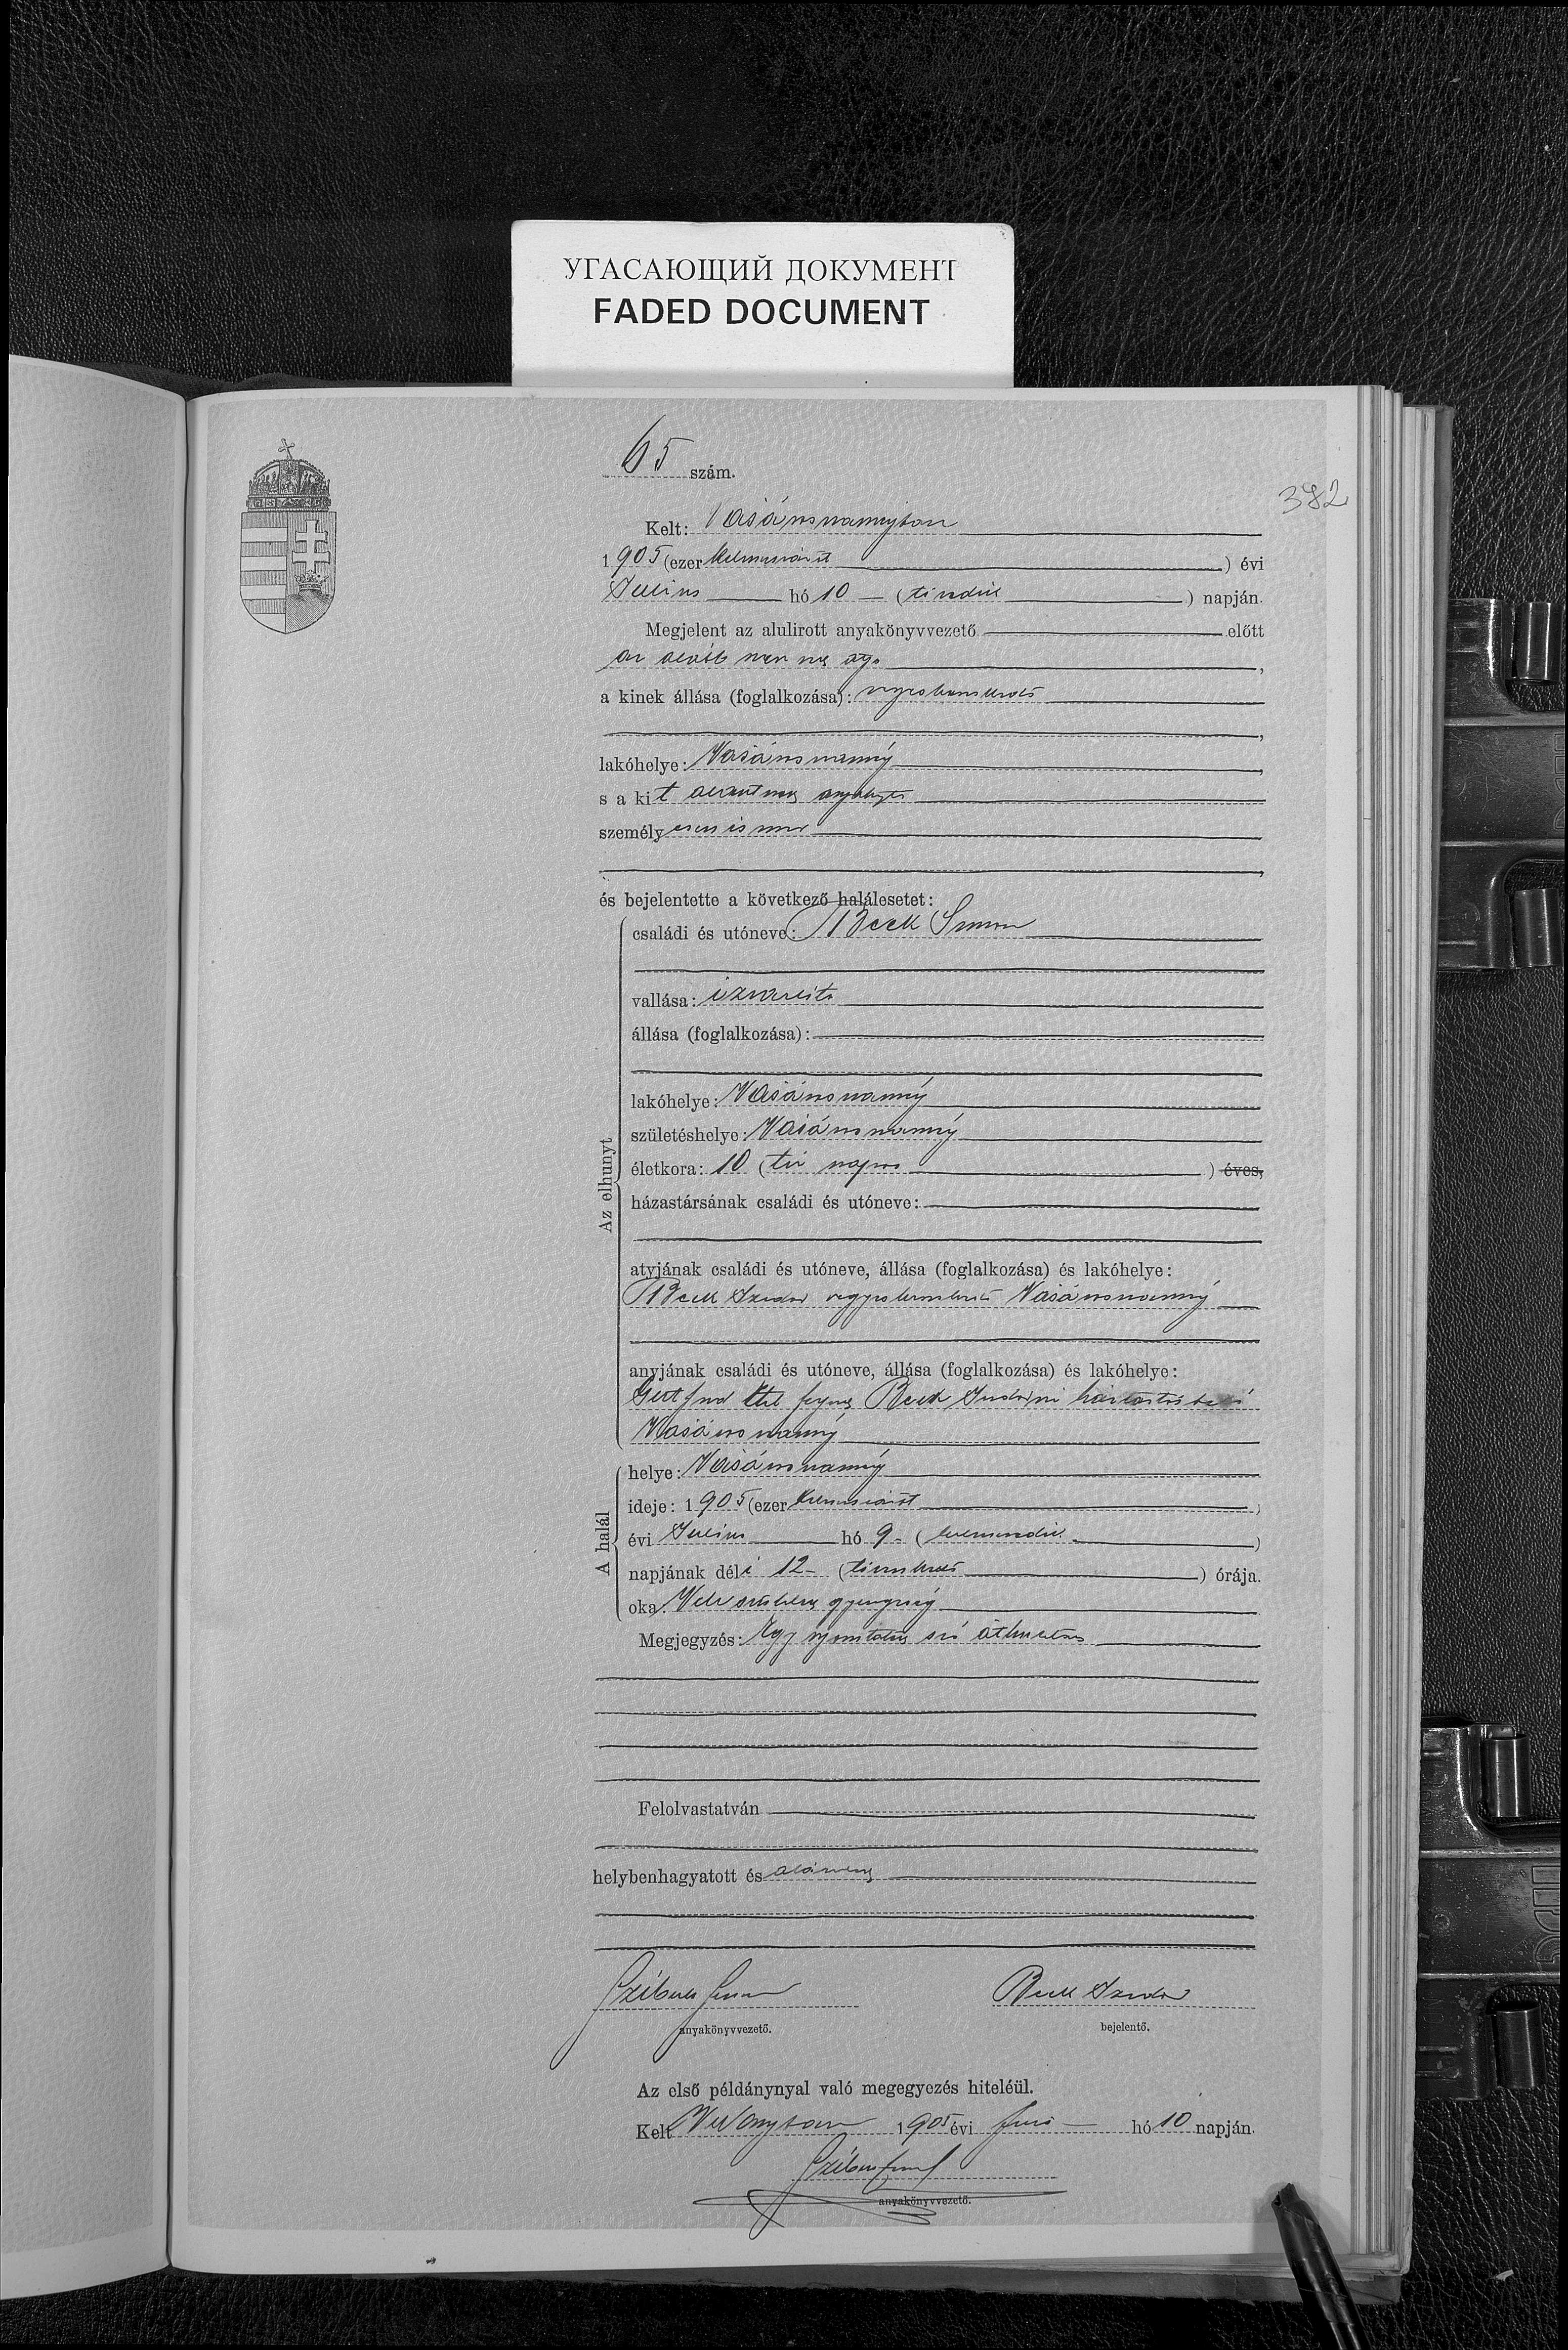 УГАСАЮЩИЙ ДОКУМЕНТ
FADED DOCUMENT
65 szám.
382
Kelt: Vásárosnaményban
1905 (ezer kilenszázöt) évi
Julius hó 10 (tizedik) napján.
Megjelent az alulirott anyakönyvvezető előtt
az alább
a kinek állása (foglalkozása):
lakóhelye: Vásárosnamény
s a kit anyakönyv
személyesen ismer
és bejelentette a következő halálesetet:
Az elhunyt
családi és utóneve: Beck Simon
vallása: izraelita
állása (foglalkozása):
lakóhelye: Vásárosnamény
születéshelye: Vásárosnamény
életkora: 10 (tiz napos) éves,
házastársának családi és utóneve:
atyjának családi és utóneve, állása (foglalkozása) és lakóhelye:
Beck Izidor Vásárosnamény
anyjának családi és utóneve, állása (foglalkozása) és lakóhelye:
Etel Beck háztartásbeli
Vásárosnamény
A halál
helye: Vásárosnamény
ideje: 1905 (ezer kilenszázöt)
évi Julius hó 9 (kilenczedik)
napjának déli 12 (tizenkettő) órája.
oka: Vele született gyengeség
Megjegyzés: Egy nyomtatott szó áthuzva
Felolvastatván
helybenhagyatott és aláiratott
Beck Izidor
anyakönyvvezető.
bejelentő.
Az első példánynyal való megegyezés hiteléül.
Kelt 1905 évi hó 10 napján.
anyakönyvvezető.